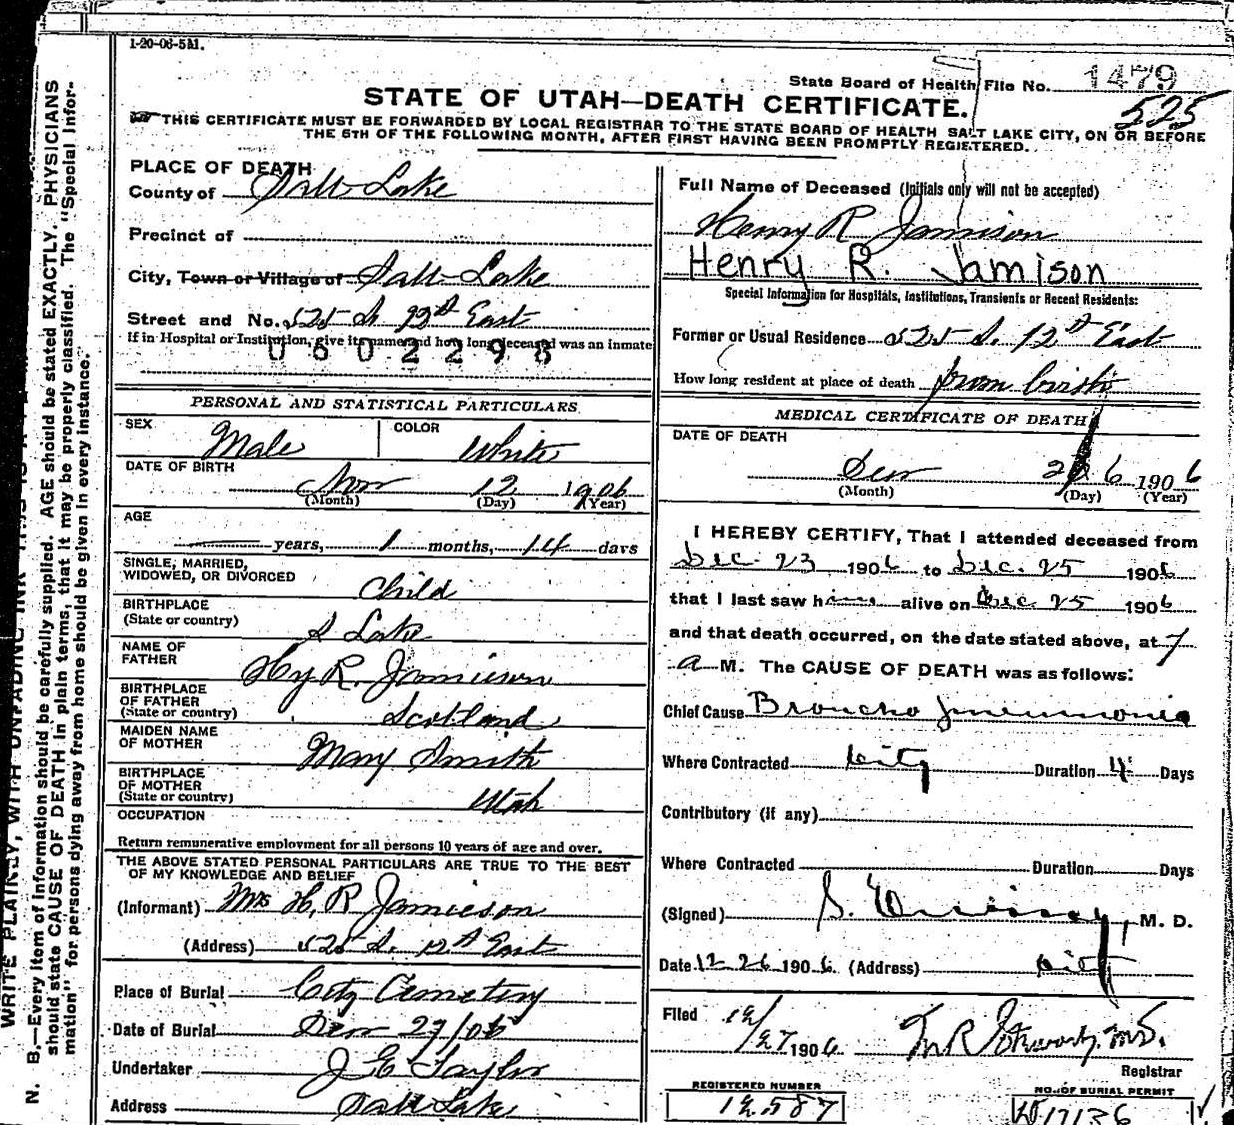 1-20-06-5M.
State Board of Health File No. 1479
525
STATE OF UTAH—DEATH CERTIFICATE.
THIS CERTIFICATE MUST BE FORWARDED BY LOCAL REGISTRAR TO THE STATE BOARD OF HEALTH SALT LAKE CITY, ON OR BEFORE
THE 5TH OF THE FOLLOWING MONTH, AFTER FIRST HAVING BEEN PROMPTLY REGISTERED.
PLACE OF DEATH
County of Salt Lake
Precinct of
City, Town or Village of Salt Lake
Street and No. 525 S 12th East
If in Hospital or Institution, give its name and how long deceased was an inmate
0602298
PERSONAL AND STATISTICAL PARTICULARS
SEX Male COLOR White
DATE OF BIRTH
Nov 12 1906
(Month) (Day) (Year)
AGE
years, 1 months, 14 days
SINGLE, MARRIED,
WIDOWED, OR DIVORCED
Child
BIRTHPLACE
(State or country) S Lake
NAME OF
FATHER Hy R. Jamieson
BIRTHPLACE
OF FATHER
(State or country) Scotland
MAIDEN NAME
OF MOTHER Mary Smith
BIRTHPLACE
OF MOTHER
(State or country) Utah
OCCUPATION
Return remunerative employment for all persons 10 years of age and over.
THE ABOVE STATED PERSONAL PARTICULARS ARE TRUE TO THE BEST
OF MY KNOWLEDGE AND BELIEF
(Informant) Mrs H. R Jamieson
(Address) 525 S. 12th East
Place of Burial City Cemetery
Date of Burial Dec 27/06
Undertaker J E Taylor
Address Salt Lake
Full Name of Deceased (Initials only will not be accepted)
Henry R Jamison
Henry R. Jamison
Special Information for Hospitals, Institutions, Transients or Recent Residents:
Former or Usual Residence 525 S. 12th East
How long resident at place of death from birth
MEDICAL CERTIFICATE OF DEATH
DATE OF DEATH
Dec 26 1906
(Month) (Day) (Year)
I HEREBY CERTIFY, That I attended deceased from
Dec. 23 1906 to Dec. 25 1906
that I last saw him alive on Dec. 25 1906
and that death occurred, on the date stated above, at 7
a M. The CAUSE OF DEATH was as follows:
Chief Cause Broncho pneumonia
Where Contracted City Duration 4 Days
Contributory (if any)
Where Contracted Duration Days
(Signed) S. M. D.
Date 12 26 1906 (Address) City
Filed 12/27 1906
Registrar
REGISTERED NUMBER
12587
NO. OF BURIAL PERMIT
17136
N. B.—Every item of information should be carefully supplied. AGE should be stated EXACTLY. PHYSICIANS
should state CAUSE OF DEATH in plain terms, that it may be properly classified. The "Special Infor-
mation" for persons dying away from home should be given in every instance.
WRITE PLAINLY, WITH UNFADING INK